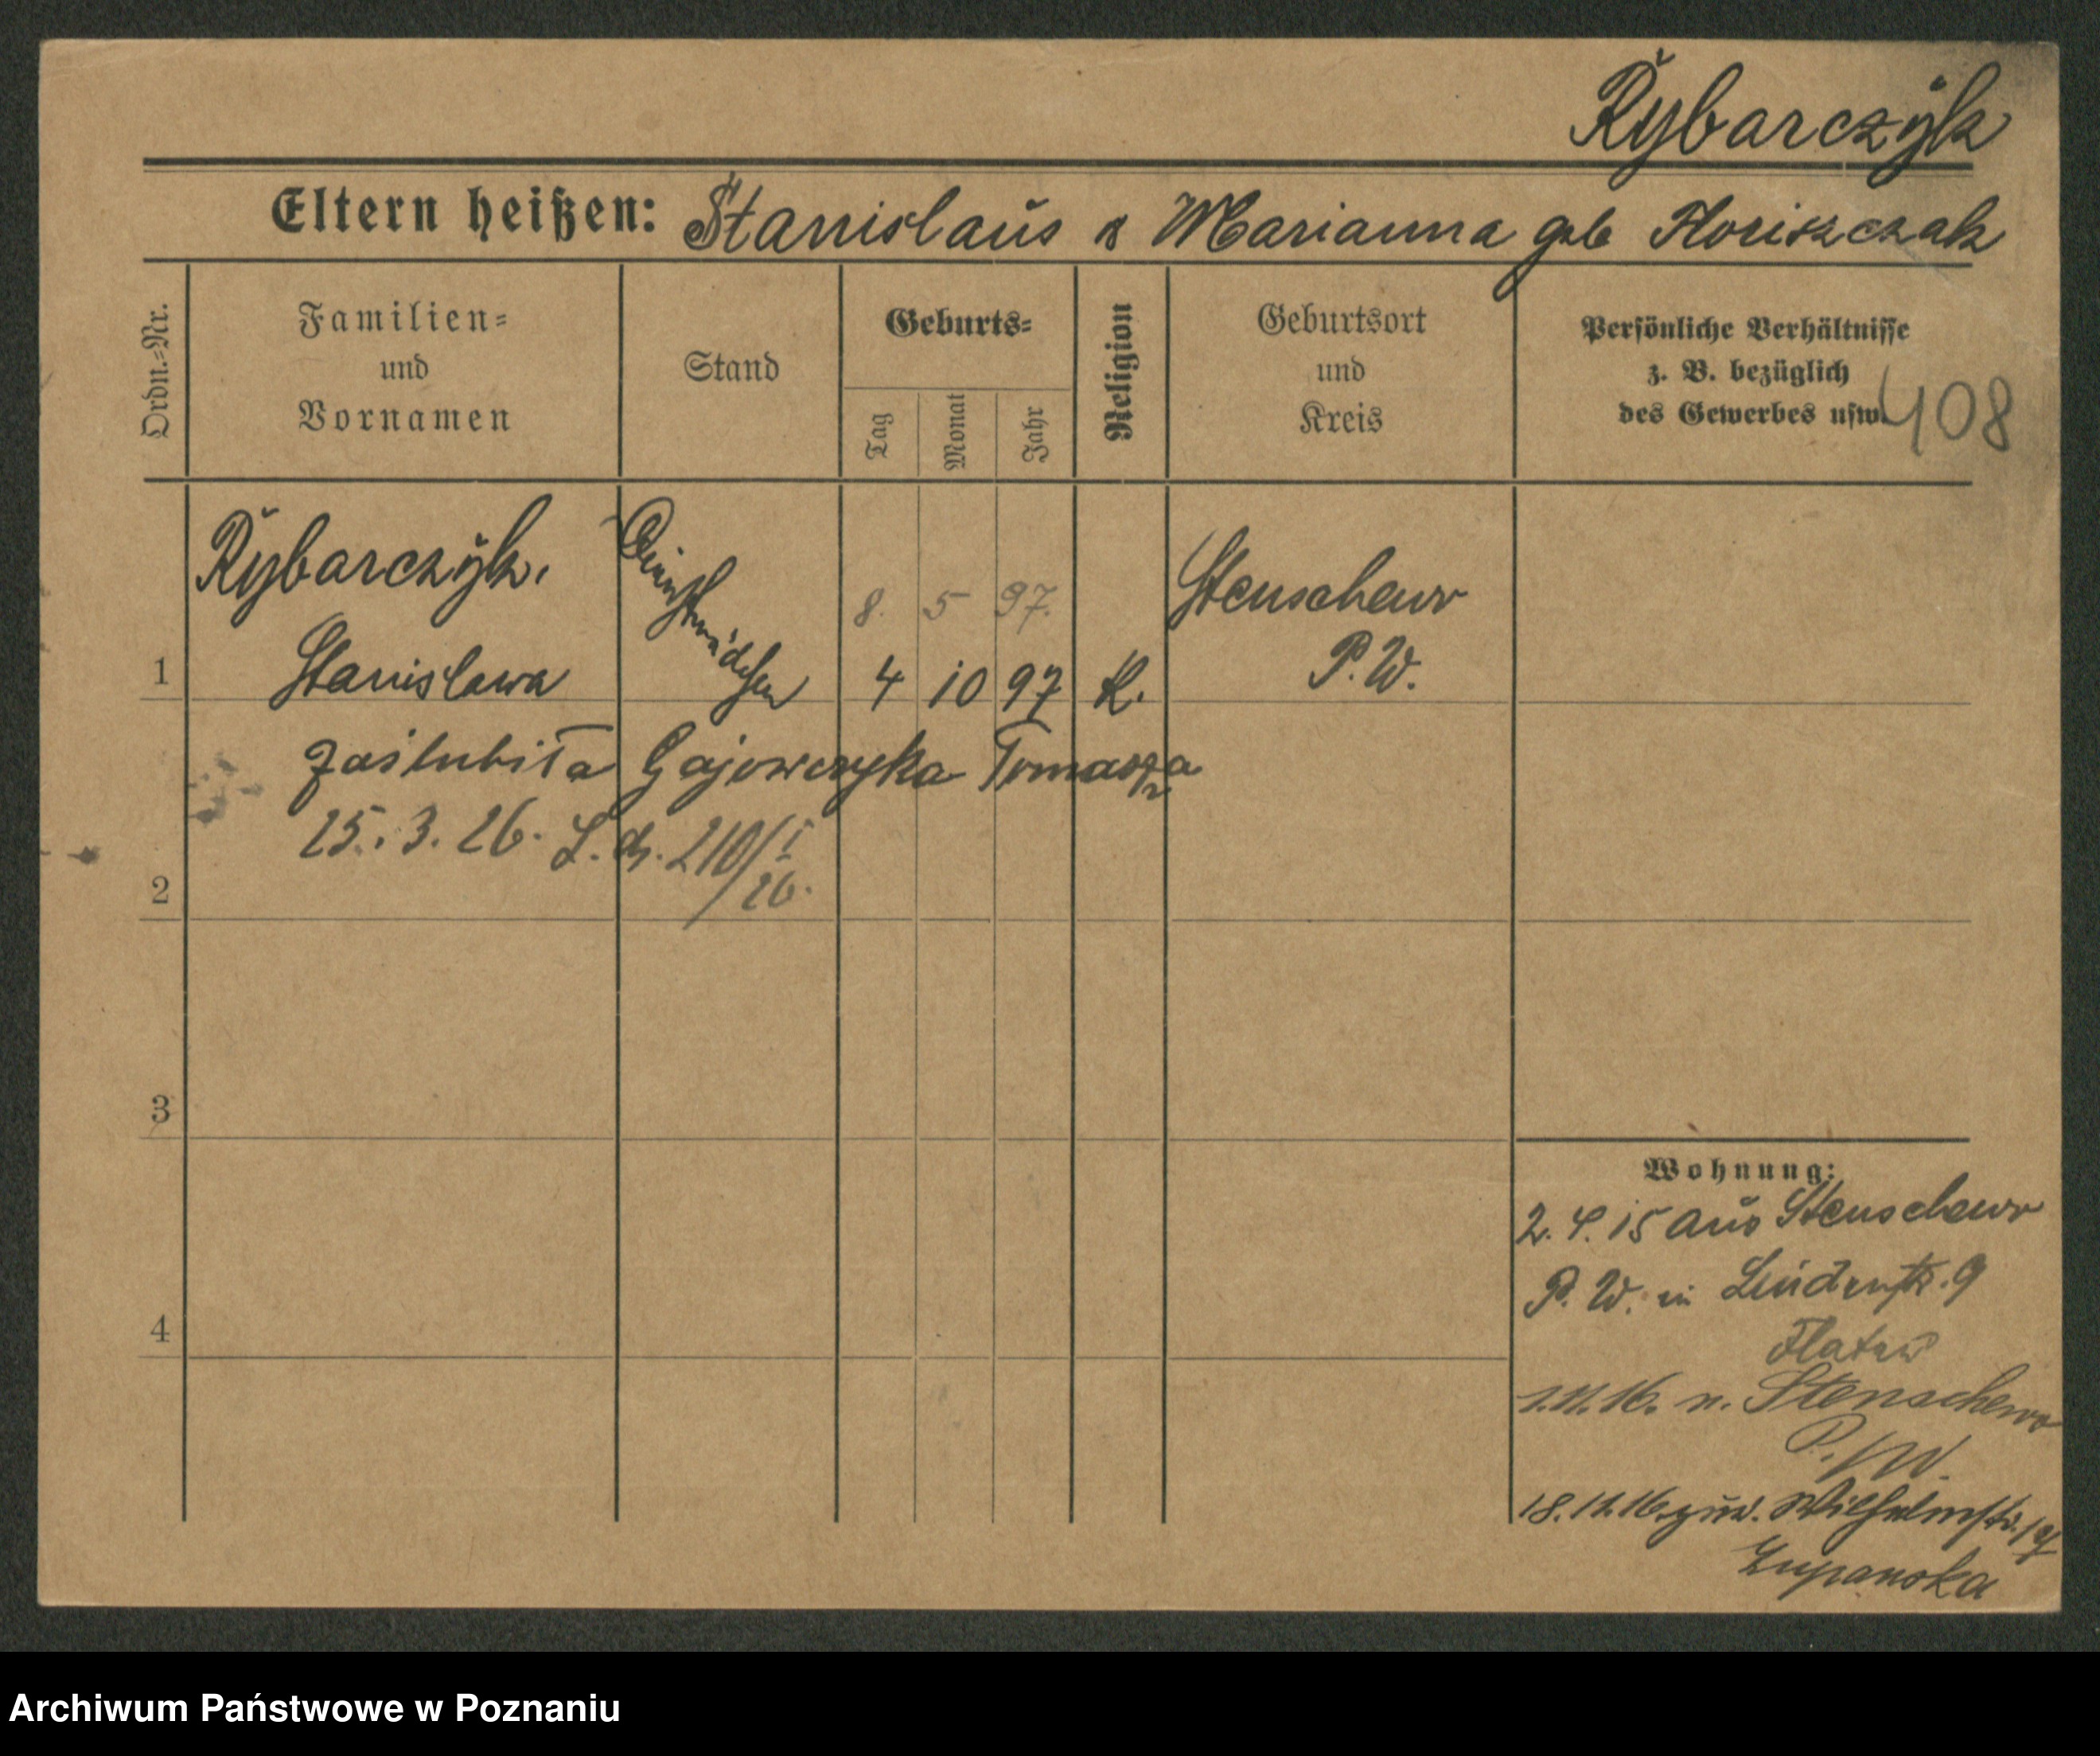 Rybarczyk
Eltern heißen: Stanislaus & Marianna geb Floriszczak
Ordn.-Nr.
Familien-
und
Vornamen
Stand
Geburts-
Tag
Monat
Jahr
Religion
Geburtsort
und
Kreis
Persönliche Verhältnisse
z. B. bezüglich
des Gewerbes usw.
408
1
Rybarczyk.
Stanislawa
Dienstmädchen
8. 5 97.
4 10 97
K.
Stenschewo
P. W.
zaślubiła Gajowczyka Tomasza
25. 3. 26. L. dz. 210/I
26.
2
3
4
Wohnung:
2. 4. 15 aus Stenschewo
P. W. in Lindenstr. 9
Flatau
1.11.16. n. Stenschewo
P./W.
18.11.16. zur. Wilhelmstr. 17
Zupanska
Archiwum Państwowe w Poznaniu